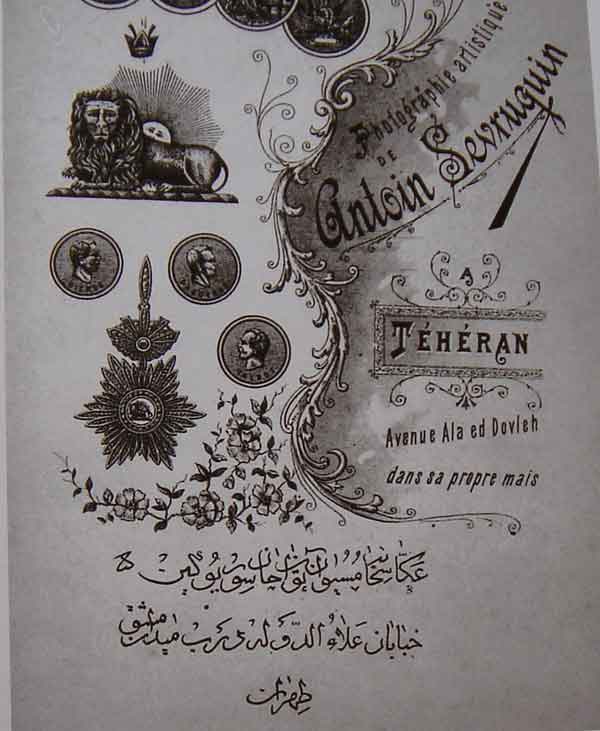 Photographie artistique
DE
Antoin Sevruguin
A
TÉHÉRAN
Avenue Ala ed Dovleh
dans sa propre mais
عکاسخانه مسیو خان سوریوگین
خیابان علاء الدوله میدان مشق
طهران